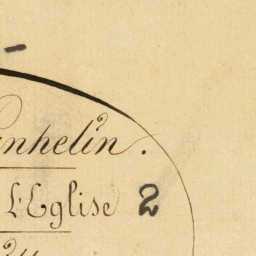 nhelin.
L'Eglise 2